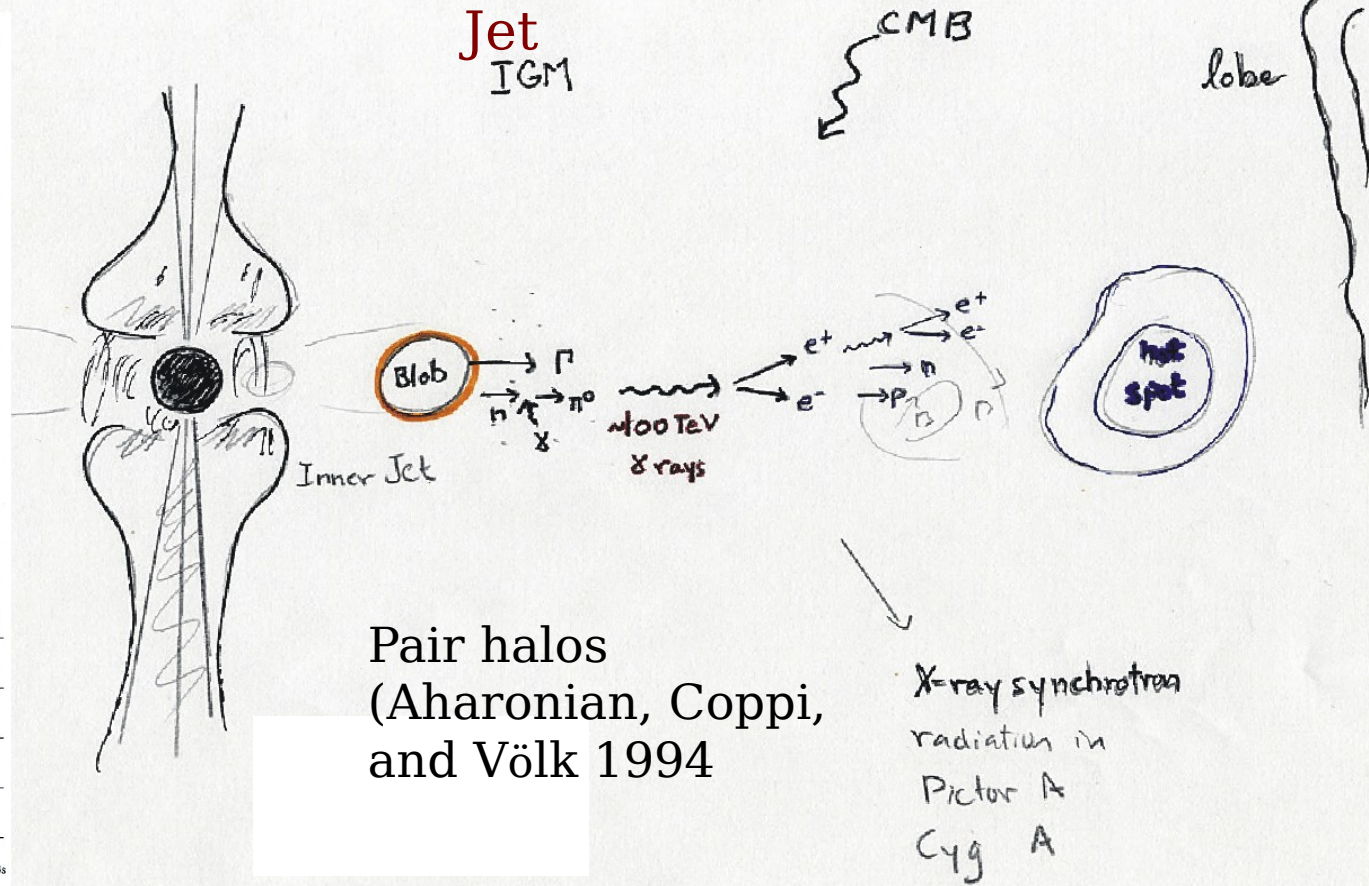 Jet
IGM
CMB
lobe
Blob
Γ
n
γ
π⁰
~100 TeV
γ rays
e⁺
e⁻
e⁺
e⁻
n
p
B
Γ
hot
spot
Inner Jet
Pair halos
(Aharonian, Coppi,
and Völk 1994
X-ray synchrotron
radiation in
Pictor A
Cyg A